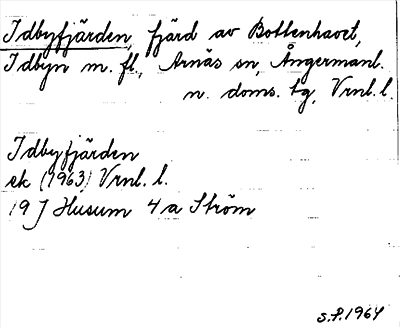 Idbyfjärden, fjärd av Bottenhavet,
Idbyn m. fl., Arnäs sn, Ångermanl.
n. doms. tg, Vrnl. l.
Idbyfjärden
ek (1963) Vrnl. l.
19 J Husum 4 a Ström
S.P. 1964